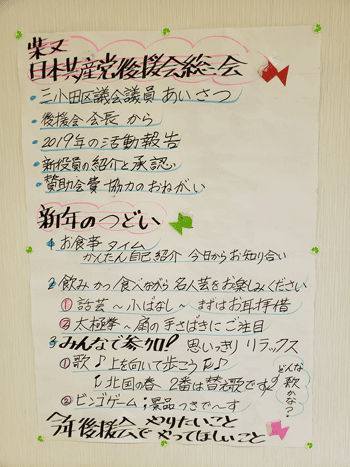 柴又
日本共産党後援会総会
・三小田区議会議員 あいさつ
・後援会 会長 から
・2019年の活動報告
・新役員の紹介と承認
・賛助会費 協力のおねがい
新年のつどい
1 お食事タイム
かんたん自己紹介 今日からお知り合い
2 飲みかつ食べながら 名人芸をお楽しみください
① 話芸～小ばなし～ まずはお耳拝借
② 太極拳～扇の手さばきにご注目
3 みんなで参加! 思いっきり リラックス
① 歌♪上を向いて歩こう♪
♪北国の春 2番は替え歌です♪
どんな歌かな?
② ビンゴゲーム:景品つきで～す
今年後援会で やりたいこと
やってほしいこと